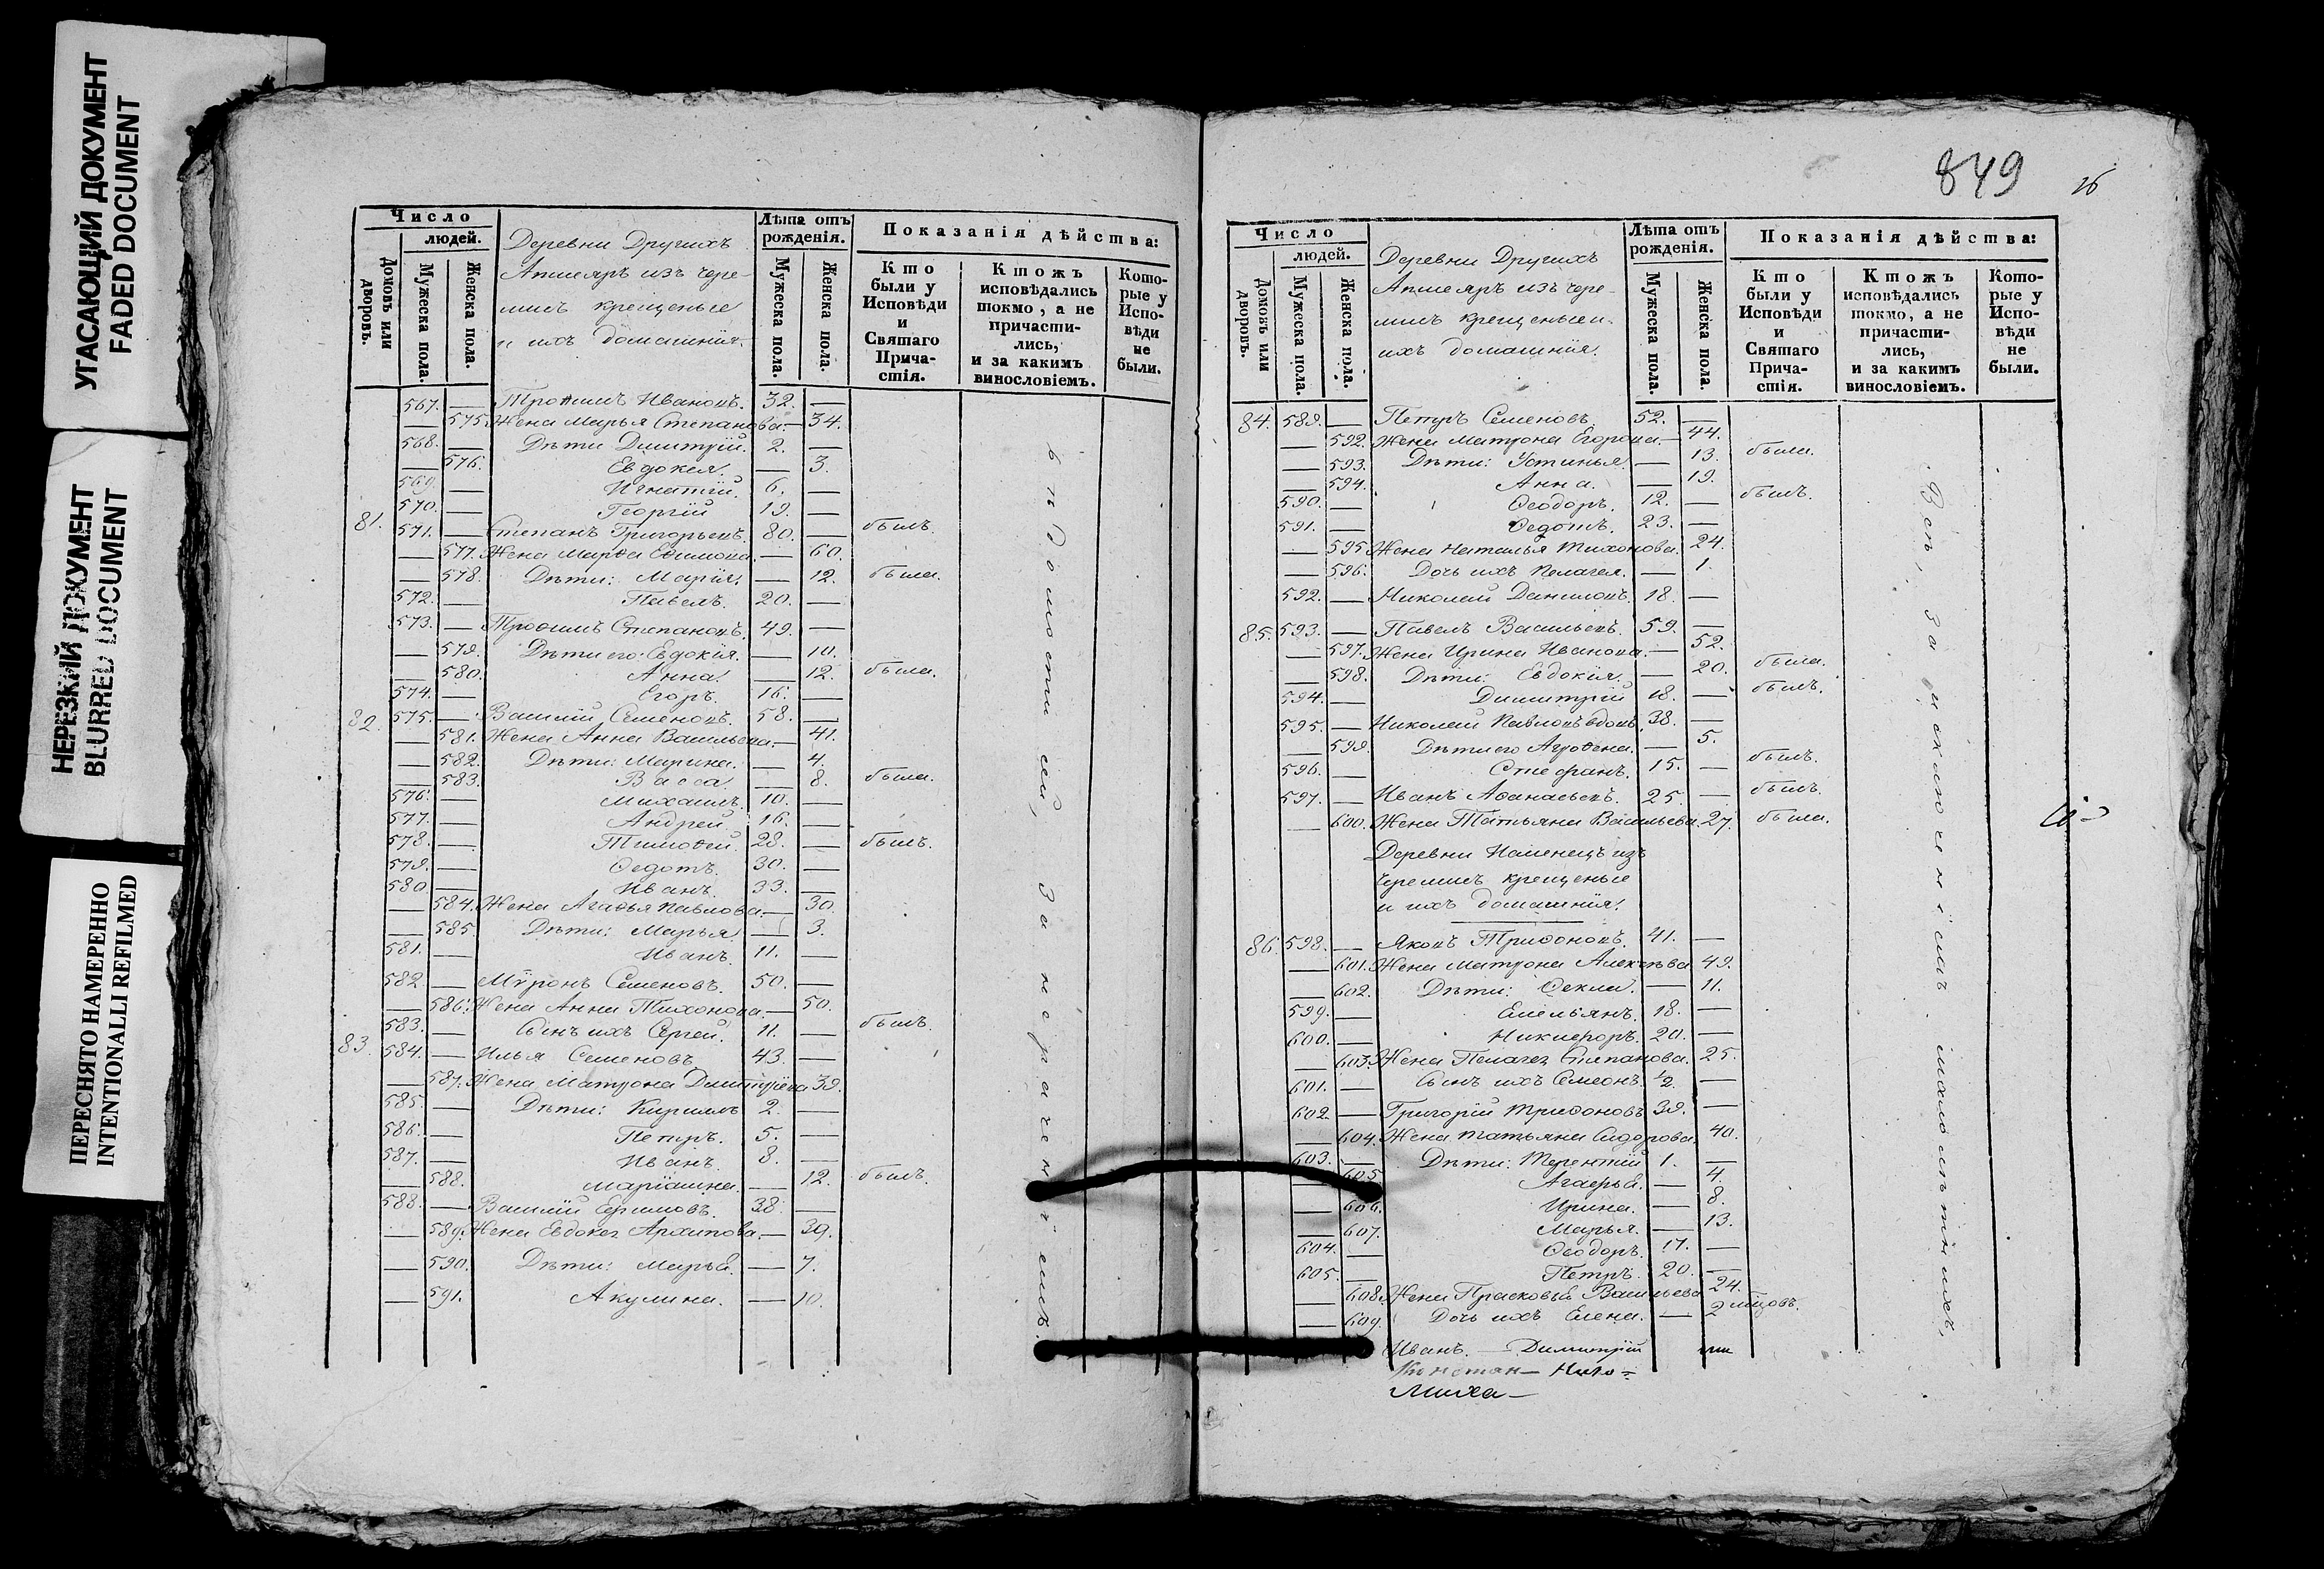 УГАСАЮЩИЙ ДОКУМЕНТ
FADED DOCUMENT
НЕРЕЗКИЙ ДОКУМЕНТ
BLURRED DOCUMENT
ПЕРЕСНЯТО НАМЕРЕННО
INTENTIONALLI REFILMED
Число
людей.
Домовъ или дворовъ.
Мужеска пола.
Женска пола.
Деревни Другихъ
Апшеяръ изъ чере-
мисъ крещеные
и ихъ домашнія.
Лѣта отъ рождения.
Мужеска пола.
Женска пола.
Показанія дѣйства:
Кто были у Исповѣди и Святаго Прича-стія.
Ктожъ исповѣдались токмо, а не причасти-лись, и за какимъ винословіемъ.
Кото-рые у Испо-вѣди не были.
567. — Трофимъ Ивановъ. 32. —
— 575. Жена Марья Степанова. — 34.
568. — Дѣти Димитрій. 2. —
— 576. Евдокея. — 3.
569. — Игнатій. 6. —
570. — Георгій 19. —
81. 571. — Степанъ Григорьевъ. 80. — былъ.
— 577. Жена Марѳа Еѳимова. — 60.
— 578. Дѣти: Марія. — 12. была.
572. — Павелъ. 20. —
573. — Троѳимъ Степановъ. 49. —
— 579. Дѣти его: Евдокія. — 10.
— 580. Анна. — 12. была.
574. — Егоръ. 16. —
82. 575. — Василій Семеновъ. 58. —
— 581. Жена Анна Васильева. — 41.
— 582. Дѣти: Марина. — 4.
— 583. Васса. — 8. была.
576. — Михаилъ. 10. —
577. — Андрей. 16. —
578. — Тимоѳей. 28. — былъ.
579. — Ѳедотъ. 30. —
580. — Иванъ. 33. —
— 584. Жена Агаѳья Павлова. — 30.
— 585. Дѣти: Марья. — 3.
581. — Иванъ. 11. —
582. — Мѵронъ Семеновъ. 50. —
— 586. Жена Анна Тихонова. — 50.
583. — Сынъ ихъ Сергей. 11. — былъ.
83. 584. — Илья Семеновъ 43. —
— 587. Жена Матрона Димитріева 39.
585. — Дѣти: Кириллъ 2. —
586. — Петръ. 5. —
587. — Иванъ. 8. —
— 588. Маріамна. — 12. былъ.
588. — Василій Ефимовъ. 38. —
— 589. Жена Евдокея Архипова. — 39.
— 590. Дѣти: Марья. — 7.
— 591. Акулина. — 10.
849
Число
людей.
Домовъ или дворовъ.
Мужеска пола.
Женска пола.
Деревни Другихъ
Апшеяръ изъ чере-
мисъ крещеные и
ихъ домашнія.
Лѣта отъ рождения.
Мужеска пола.
Женска пола.
Показанія дѣйства:
Кто были у Исповѣди и Святаго Прича-стія.
Ктожъ исповѣдались токмо, а не причасти-лись, и за какимъ винословіемъ.
Кото-рые у Испо-вѣди не были.
84. 589. — Петръ Семеновъ. 52. —
— 592. Жена Матрона Егорова. — 44.
— 593. Дѣти: Устинья. — 13. была.
— 594. Анна. — 19.
590. — Ѳеодоръ. 12. — былъ.
591. — Ѳедотъ. 23. —
— 595 Жена Наталья Тихонова. 24.
— 596. Дочь ихъ Пелагея. — 1.
592. — Николай Даниловъ. 18. —
85. 593. — Павелъ Васильевъ. 59. —
— 597. Жена Ирина Иванова. — 52.
— 598. Дѣти: Евдокія. — 20. была.
594. — Димитрій 18. — былъ.
595. — Николай Павловъ вдовъ. 38. —
— 599. Дѣти его Агроѳена. — 5.
596. — Стефанъ. 15. — былъ.
597. — Иванъ Аѳанасьевъ. 25. — былъ.
— 600. Жена Татьяна Васильева. 27. была.
Всѣ, за исключеніемъ малолѣтнихъ,
Деревни Наменецъ изъ
черемисъ крещеные
и ихъ домашнія.
86. 598. — Яковъ Триѳоновъ. 41. —
— 601. Жена Матрона Алексѣева 49.
— 602. Дѣти: Ѳекла. — 11.
599. — Емельянъ. 18. —
600. — Никифоръ. 20. —
— 603. Жена Пелагея Степанова. 25.
601. — Сынъ ихъ Симеонъ. ½. —
602. — Григорій Триѳоновъ 39. —
— 604. Жена Татьяна Сидорова. 40.
603. — Дѣти: Терентій 1. —
— 605. Агафья. — 4.
— 606. Ирина. — 8.
— 607. Марья. — 13.
604. — Ѳеодоръ. 17. —
605. — Петръ. 20. —
— 608. Жена Прасковья Васильева 24.
— 609. Дочь ихъ Елена. — 2 мѣсяцовъ.
Иванъ. — Димитрій
Констан— Нико=
Миха—